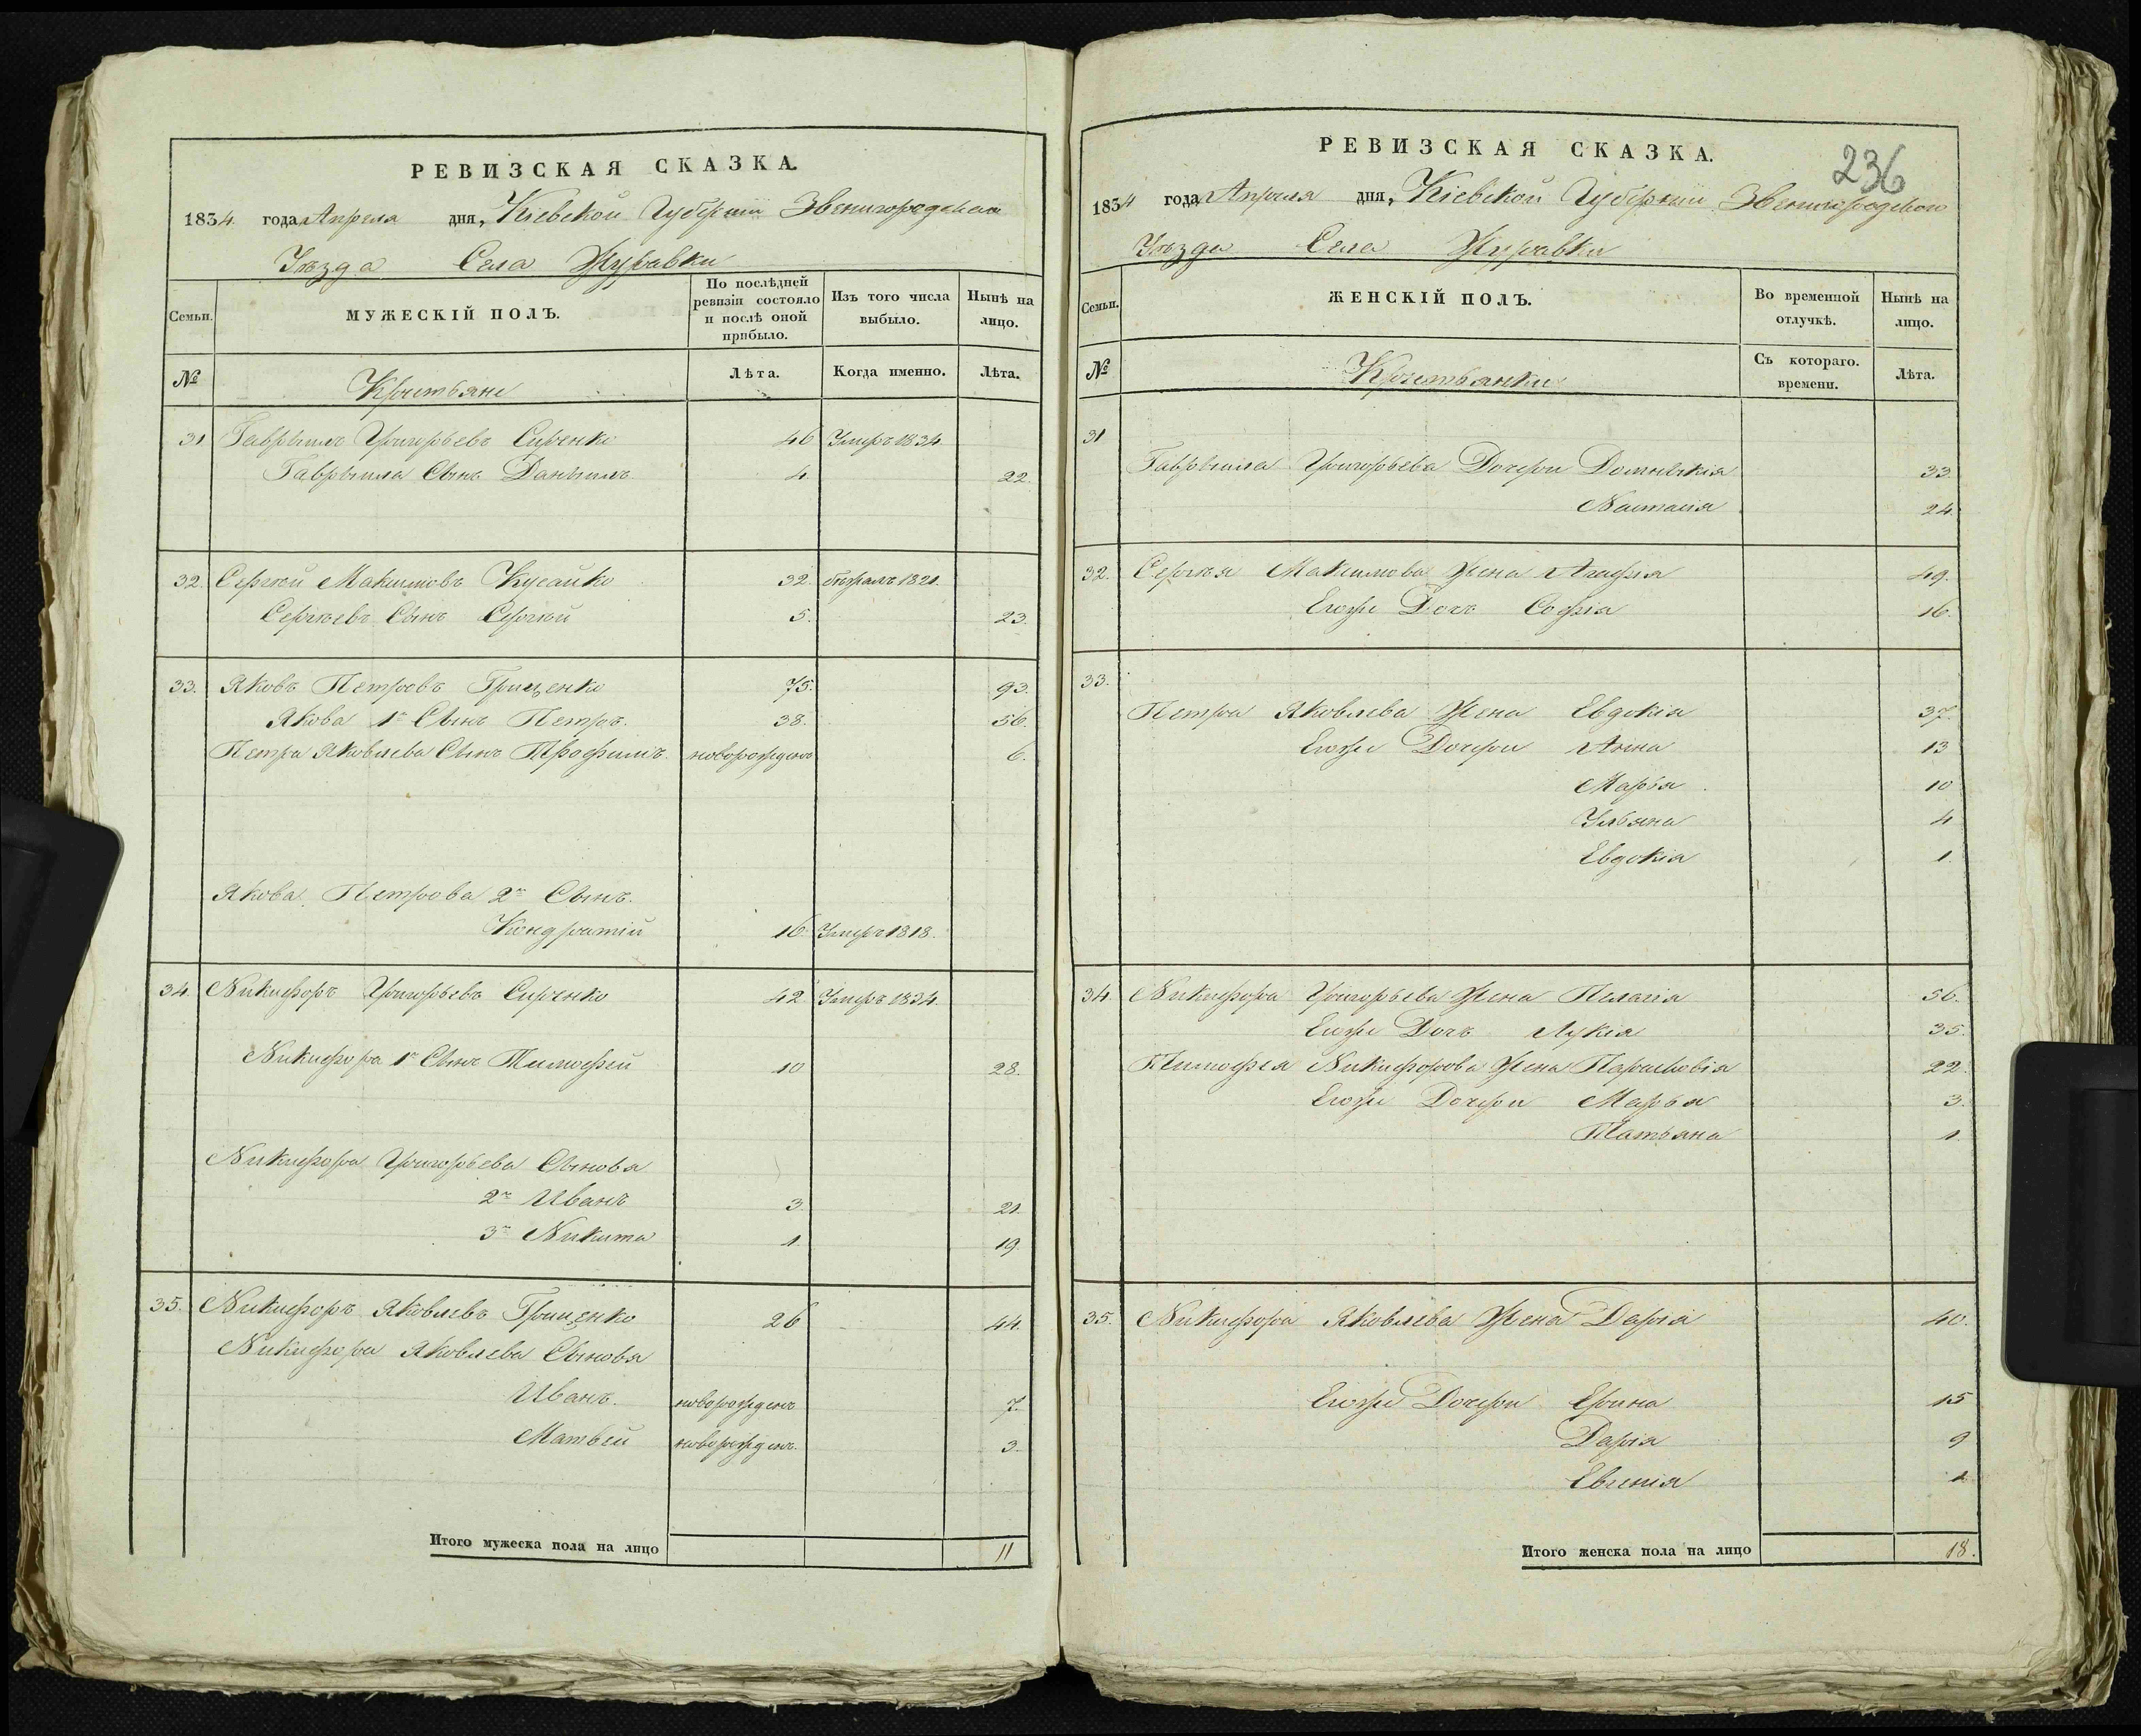 РЕВИЗСКАЯ СКАЗКА.
1834. года Апреля дня, Кіевской Губерніи Звенигородскаго
Уѣзда Села Журавки
Семьи.
МУЖЕСКІЙ ПОЛЪ.
По послѣдней ревизіи состояло и послѣ оной прибыло.
Изъ того числа выбыло.
Нынѣ на лицо.
№
Крестьяне
Лѣта.
Когда именно.
Лѣта.
31 Гаврыилъ Григорьевъ Сиренко 46 Умеръ 1834.
Гаврыила Сынъ Даныилъ 4. 22.
32. Сергѣй Максимовъ 32. бѣжалъ 1821.
Сергѣевъ Сынъ Сергѣй 5. 23.
33. Яковъ Петровъ Грищенко 75. 93.
Якова 1й Сынъ Петръ. 38. 56.
Петра Яковлева Сынъ Трофимъ. новорожденъ 6.
Якова Петрова 2й Сынъ.
Кондратій 16 Умеръ 1818.
34. Никифоръ Григорьевъ Сиренко 42 Умеръ 1834.
Никифора 1й Сынъ Тимофей 10 28.
Никифора Григорьева Сыновья
2й Иванъ 3. 21.
3й Никита 1. 19.
35. Никифоръ Яковлевъ Грищенко 26 44.
Никифора Яковлева Сыновья
Иванъ. новорожденъ 7.
Матвей новорожденъ. 3.
Итого мужеска пола на лицо 11
236
РЕВИЗСКАЯ СКАЗКА.
1834 года Апреля дня, Кіевской Губерніи Звенигородскаго
Уѣзда Села Журавки
Семьи.
ЖЕНСКІЙ ПОЛЪ.
Во временной отлучкѣ.
Нынѣ на лицо.
№
Крестьянки
Съ котораго. времени.
Лѣта.
31
Гаврыила Григорьева Дочери Домныкія 33.
Настасія 24.
32. Сергѣя Максимова Жена Агафія 49.
Егожъ Дочь Софія 16.
33.
Петра Яковлева Жена Евдокія 37.
Егоже Дочери Анна 13
Марья 10
Ульяна 4
Евдокія 1.
34. Никифора Григорьева Жена Пелагія 56.
Егоже Дочь Лукія 35.
Тимофея Никифорова Жена Парасковія 22.
Егоже Дочери Марья 3.
Татьяна 1.
35. Никифора Яковлева Жена Дарія 40.
Егоже Дочери Ерина 15
Дарія 9
Евгенія 1
Итого женска пола на лицо 18.